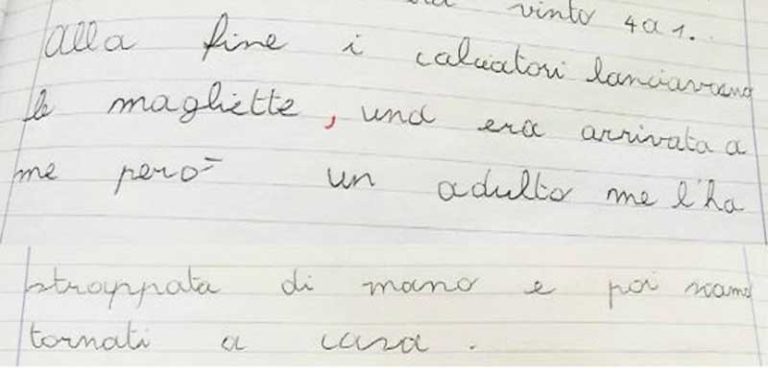 vinto 4 a 1.
alla fine i calciatori lanciavano
le magliette, una era arrivata a
me però un adulto me l'ha
strappata di mano e poi siamo
tornati a casa.